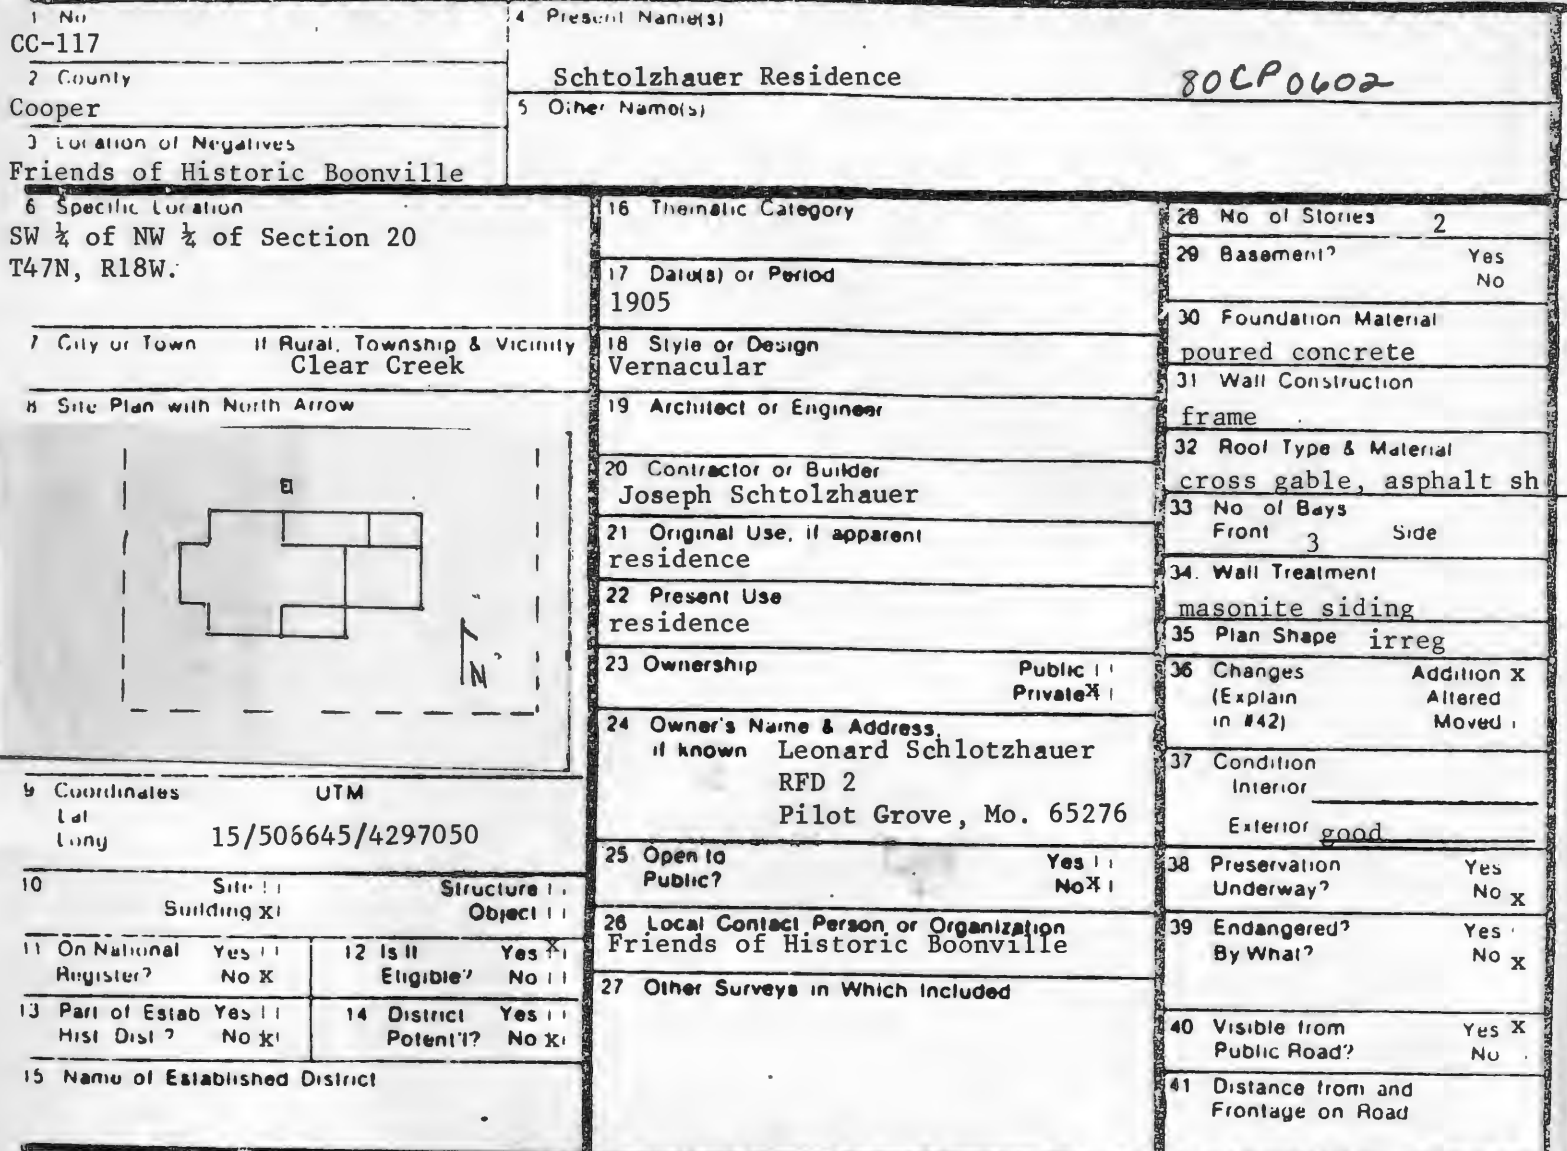 1 No
CC-117
2 County
Cooper
3 Location of Negatives
Friends of Historic Boonville
4 Present Name(s)
Schtolzhauer Residence
80CP0602
5 Other Name(s)
6 Specific Location
SW ¼ of NW ¼ of Section 20
T47N, R18W.
7 City or Town If Rural, Township & Vicinity
Clear Creek
8 Site Plan with North Arrow
N
9 Coordinates UTM
Lat
Long 15/506645/4297050
10 Site Structure
Building X Object
11 On National Yes
Register? No X
12 Is It Yes X
Eligible? No
13 Part of Estab Yes
Hist Dist? No X
14 District Yes
Potent'l? No X
15 Name of Established District
16 Thematic Category
17 Date(s) or Period
1905
18 Style or Design
Vernacular
19 Architect or Engineer
20 Contractor or Builder
Joseph Schtolzhauer
21 Original Use, if apparent
residence
22 Present Use
residence
23 Ownership Public
Private X
24 Owner's Name & Address,
if known Leonard Schlotzhauer
RFD 2
Pilot Grove, Mo. 65276
25 Open to Yes
Public? No X
26 Local Contact Person or Organization
Friends of Historic Boonville
27 Other Surveys in Which Included
28 No of Stories 2
29 Basement? Yes
No
30 Foundation Material
poured concrete
31 Wall Construction
frame
32 Roof Type & Material
cross gable, asphalt sh
33 No of Bays
Front 3 Side
34. Wall Treatment
masonite siding
35 Plan Shape irreg
36 Changes Addition X
(Explain Altered
in #42) Moved
37 Condition
Interior
Exterior good
38 Preservation Yes
Underway? No X
39 Endangered? Yes
By What? No X
40 Visible from Yes X
Public Road? No
41 Distance from and
Frontage on Road